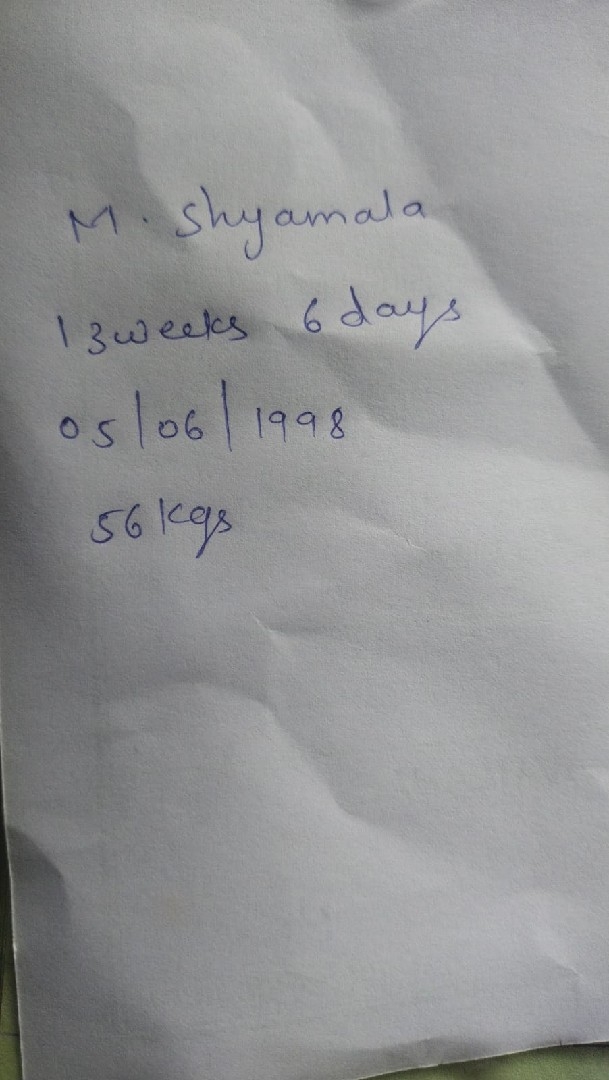 M. Shyamala
13 weeks 6 days
05/06/1998
56 kgs